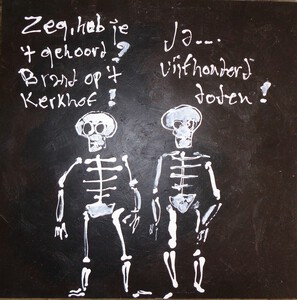 Zeg, heb je
't gehoord?
Brand op 't
Kerkhof!
Ja...
vijfhonderd
doden!